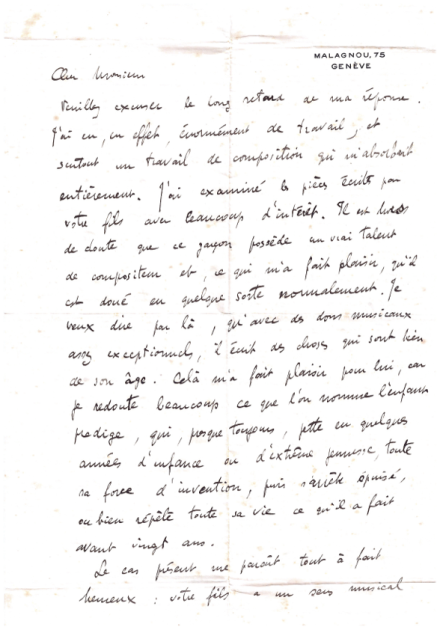 MALAGNOU, 75
GENÈVE
Cher Monsieur
Veuillez excuser le long retard de ma réponse.
J'ai eu, en effet, énormément de travail, et
surtout un travail de composition qui m'absorbait
entièrement. J'ai examiné les pièces écrites par
votre fils avec beaucoup d'intérêt. Il est hors
de doute que ce garçon possède un vrai talent
de compositeur et, ce qui m'a fait plaisir, qu'il
est doué en quelque sorte normalement. Je
veux dire par là, qu'avec des dons musicaux
assez exceptionnels, il écrit des choses qui sont bien
de son âge. Celà m'a fait plaisir pour lui, car
je redoute beaucoup ce que l'on nomme l'enfant
prodige, qui, presque toujours, jette en quelques
années d'enfance ou d'extrême jeunesse, toute
sa force d'invention, puis s'arrête épuisé,
ou bien répète toute sa vie ce qu'il a fait
avant vingt ans.
Le cas présent me paraît tout à fait
heureux : votre fils a un sens musical